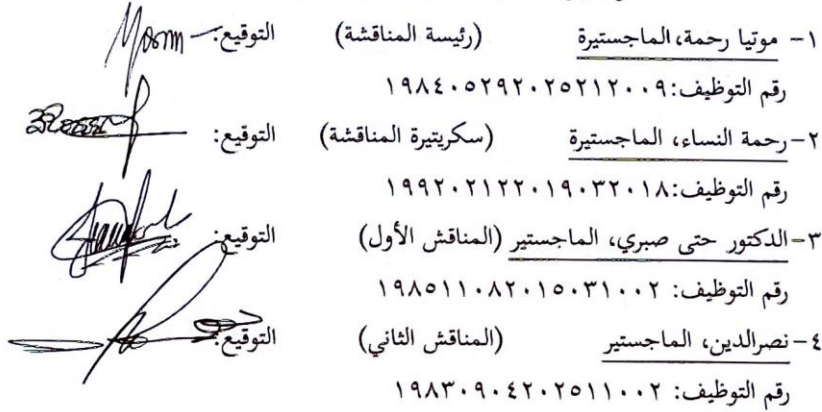 ١- موتيا رحمة، الماجستيرة (رئيسة المناقشة) التوقيع:
رقم التوظيف: ١٩٨٤٠٥٢٩٢٠٢٥٢١٢٠٠٩
٢- رحمة النساء، الماجستيرة (سكريتيرة المناقشة) التوقيع:
رقم التوظيف: ١٩٩٢٠٢١٢٢٠١٩٠٣٢٠١٨
٣- الدكتور حتى صبري، الماجستير (المناقش الأول) التوقيع:
رقم التوظيف: ١٩٨٥١١٠٨٢٠١٥٠٣١٠٠٢
٤- نصرالدين، الماجستير (المناقش الثاني) التوقيع:
رقم التوظيف: ١٩٨٣٠٩٠٤٢٠٢٥١١٠٠٢